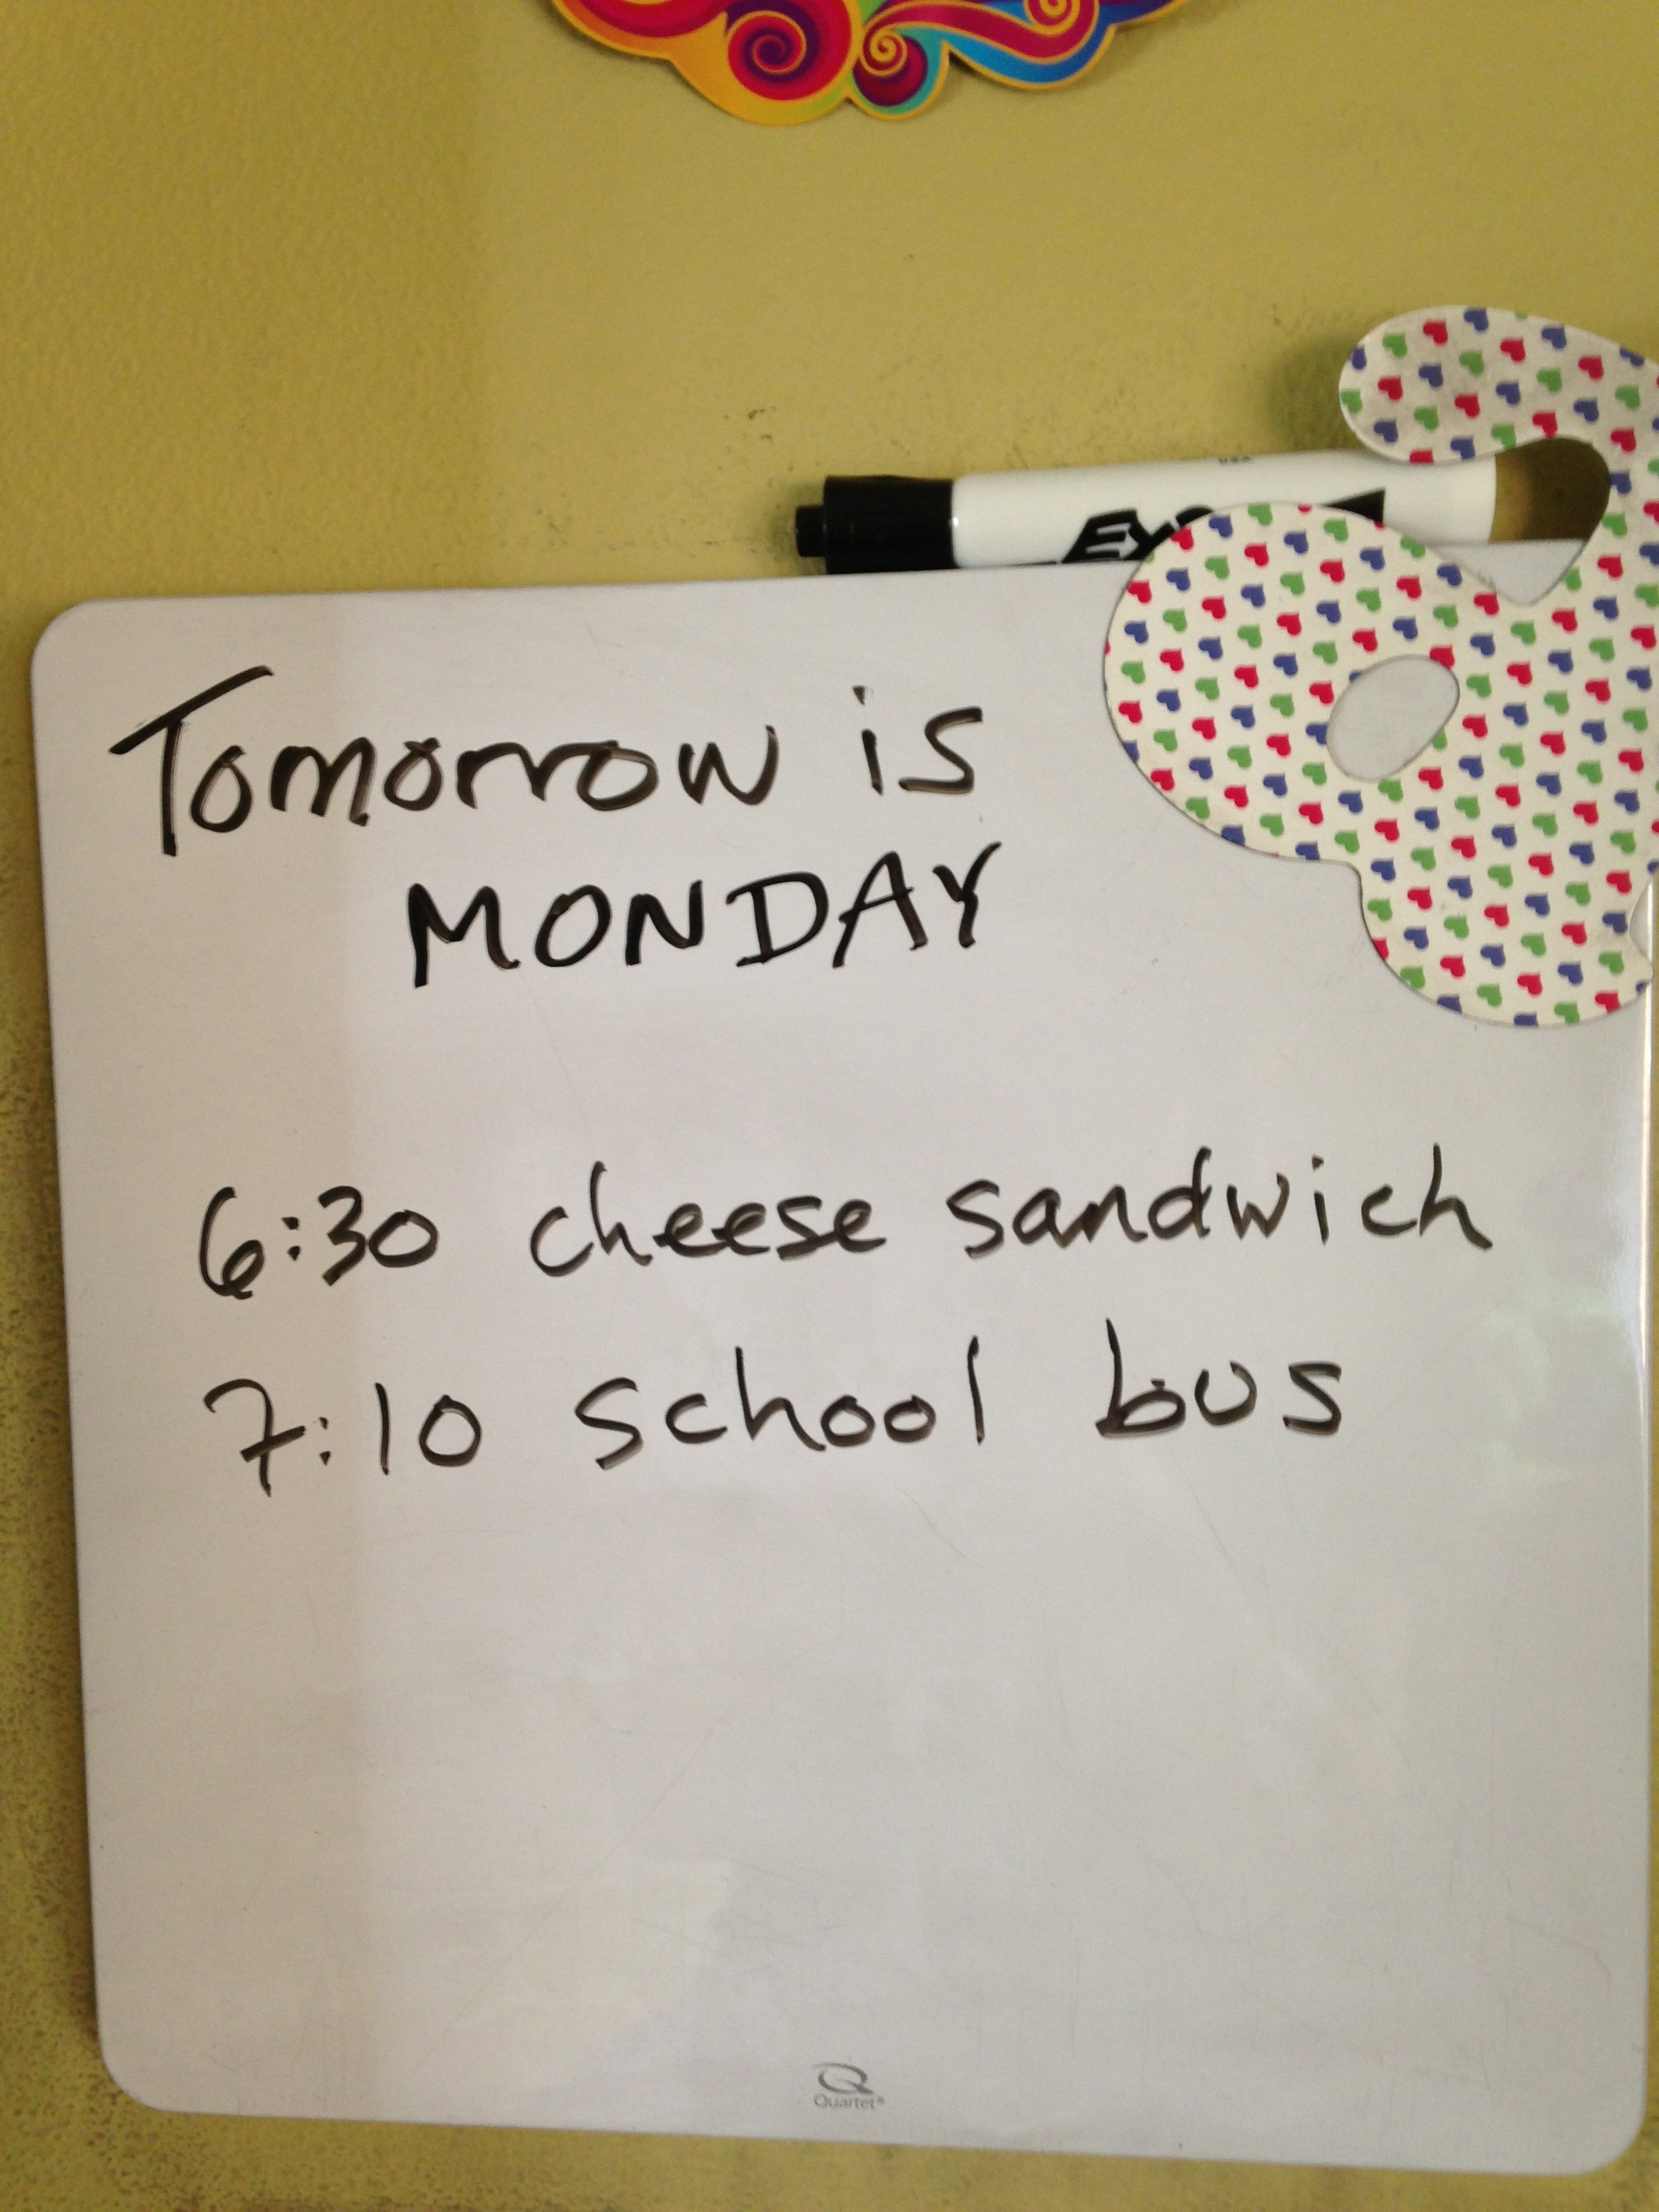 USA
Tomorrow is
MONDAY
6:30 cheese sandwich
7:10 school bus
Quartet®